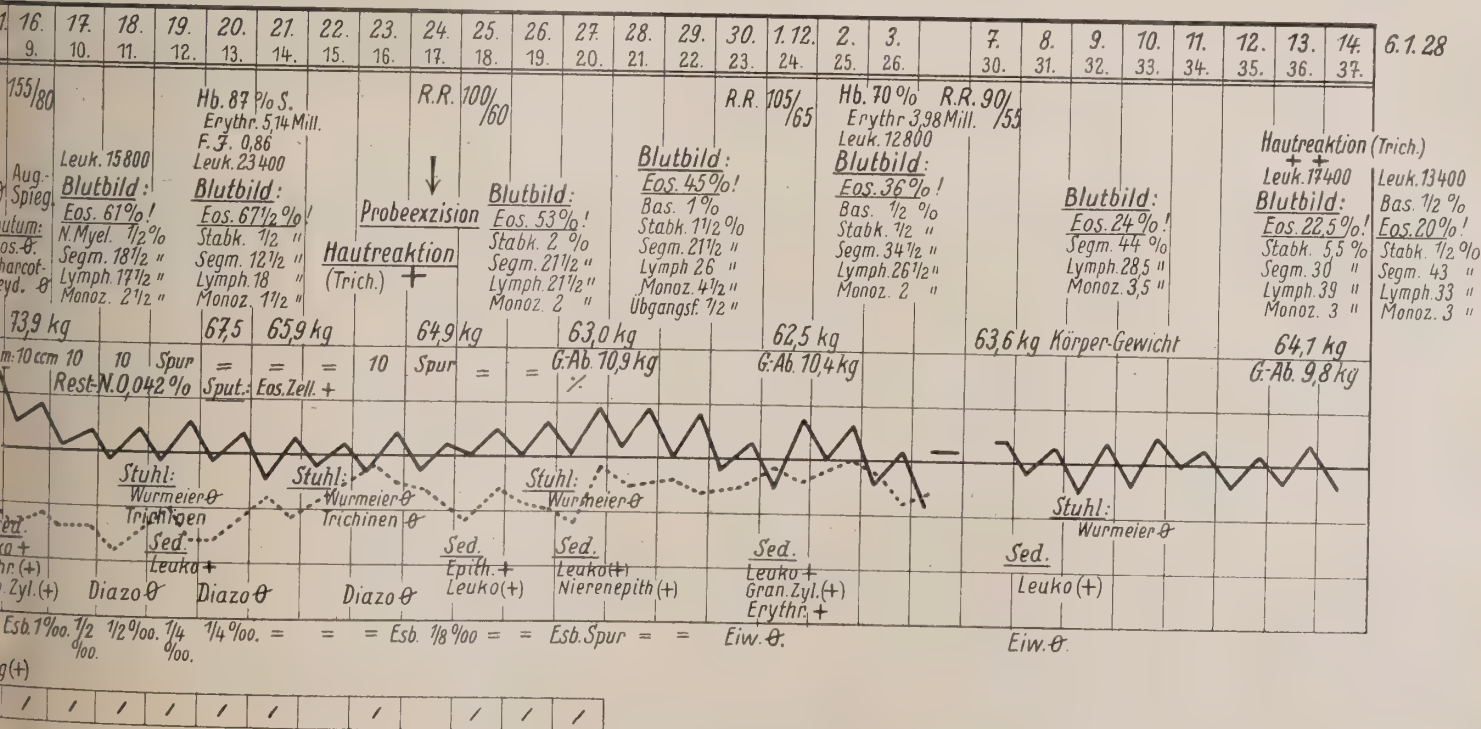 1. 16. 17. 18. 19. 20. 21. 22. 23. 24. 25. 26. 27. 28. 29. 30. 1.12. 2. 3. 7. 8. 9. 10. 11. 12. 13. 14. 6.1.28
9. 10. 11. 12. 13. 14. 15. 16. 17. 18. 19. 20. 21. 22. 23. 24. 25. 26. 30. 31. 32. 33. 34. 35. 36. 37.
155/80
Aug.-
Spieg.
utum:
os. θ
harcot-
eyd. θ
Leuk. 15800
Blutbild:
Eos. 61%!
N.Myel. 1/2%
Segm. 18 1/2 "
Lymph. 17 1/2 "
Monoz. 2 1/2 "
Hb. 87 % S.
Erythr. 5,14 Mill.
F.J. 0,86
Leuk. 23 400
Blutbild:
Eos. 67 1/2 %!
Stabk. 1/2 "
Segm. 12 1/2 "
Lymph. 18 "
Monoz. 1 1/2 "
Hautreaktion
(Trich.) +
R.R. 100/60
↓
Probeexzision
Blutbild:
Eos. 53%!
Stabk. 2 %
Segm. 21 1/2 "
Lymph. 21 1/2 "
Monoz. 2 "
Blutbild:
Eos. 45%!
Bas. 1 %
Stabk. 1 1/2 %
Segm. 21 1/2 "
Lymph 26 "
Monoz. 4 1/2 "
Übgangsf. 1/2 "
R.R. 105/65
Hb. 70 %
Erythr 3,98 Mill.
Leuk. 12800
Blutbild:
Eos. 36% !
Bas. 1/2 %
Stabk. 1/2 "
Segm. 34 1/2 "
Lymph. 26 1/2 "
Monoz. 2 "
R.R. 90/55
Blutbild:
Eos. 24% !
Segm. 44 %
Lymph. 28,5 "
Monoz. 3,5 "
Hautreaktion (Trich.)
+ +
Leuk. 17400
Blutbild:
Eos. 22,5%!
Stabk. 5,5 %
Segm. 30 "
Lymph. 39 "
Monoz. 3 "
Leuk. 13400
Bas. 1/2 %
Eos. 20% !
Stabk. 1/2 %
Segm. 43 "
Lymph. 33 "
Monoz. 3 "
73,9 kg 67,5 65,9 kg 64,9 kg 63,0 kg 62,5 kg 63,6 kg Körper-Gewicht 64,1 kg
m: 10 ccm 10 10 Spur = = = 10 Spur = = G.-Ab. 10,9 kg G.-Ab. 10,4 kg G.-Ab. 9,8 kg
Rest-N. 0,042 % Sput.: Eos. Zell. + ⁒
Stuhl:
Wurmeier θ
Trichinen
Stuhl:
Wurmeier θ
Trichinen θ
Stuhl:
Wurmeier θ
Stuhl:
Wurmeier θ
ed.
ko +
hr. (+)
. Zyl. (+)
Sed.
Leuko +
Sed.
Epith. +
Leuko (+)
Sed.
Leuko (+)
Nierenepith (+)
Sed.
Leuko +
Gran. Zyl. (+)
Erythr. +
Sed.
Leuko (+)
Diazo θ Diazo θ Diazo θ
Esb. 1 ‰. 1/2 ‰. 1/2 ‰. 1/4 ‰. 1/4 ‰. = = = Esb. 1/8 ‰ = = Esb. Spur = = Eiw. θ. Eiw. θ.
g (+)
/ / / / / / / / / /